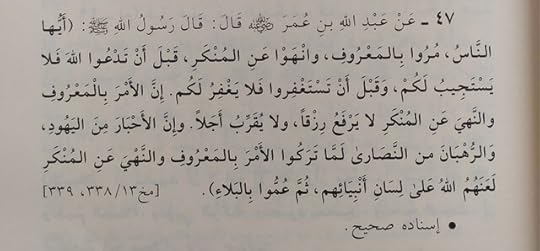 ٤٧ ـ عَنْ عَبْدِ اللهِ بنِ عُمَرَ ﷺ قَالَ: قَالَ رَسُولُ اللهِ ﷺ: (أَيُّها
النَّاسُ، مُرُوا بِالمَعْرُوفِ، وانْهَوْا عَنِ المُنْكَرِ، قَبْلَ أَنْ تَدْعُوا اللهَ فَلا
يَسْتَجِيبُ لَكُمْ، وَقَبْلَ أَنْ تَسْتَغْفِروا فَلا يَغْفِرُ لَكُم. إنَّ الأَمْرَ بِالْمَعْرُوفِ
والنَّهيَ عَنِ المُنْكَرِ لا يَرْفَعُ رِزْقاً، ولا يُقَرِّبُ أَجَلاً. وإنَّ الأَحْبَارَ مِنَ اليَهُودِ،
وَالرُّهْبَانَ من النَّصارىٰ لَمَّا تَرَكُوا الأَمْرَ بِالمَعْرُوفِ وَالنَّهْيَ عَنِ المُنْكَرِ
لَعَنَهُمُ اللهُ عَلىٰ لِسَانِ أَنْبِيَائِهِم، ثُمَّ عُمُّوا بِالبَلاءِ). [مخ١٣/ ٣٣٨، ٣٣٩]
• إسناده صحيح.